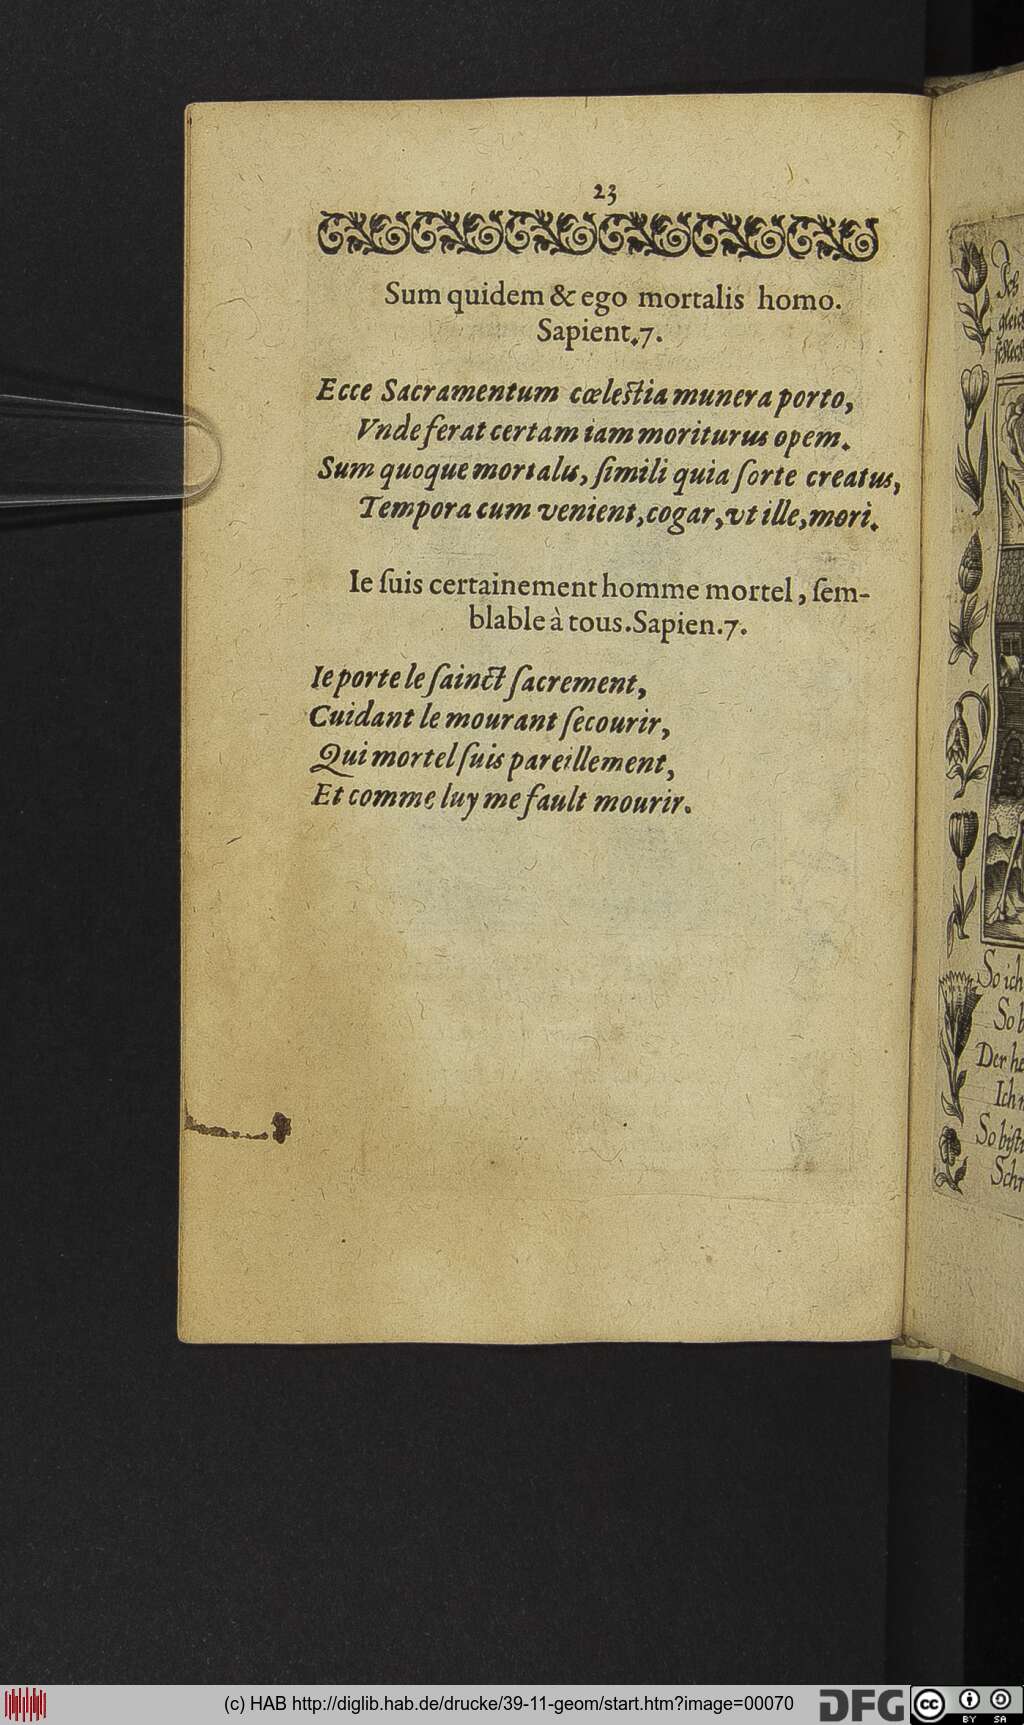 23
Sum quidem & ego mortalis homo.
Sapient.7.
Ecce Sacramentum cœlestia munera porto,
Vnde ferat certam iam moriturus opem.
Sum quoque mortalis, ſimili quia ſorte creatus,
Tempora cum venient, cogar, vt ille, mori.
Ie ſuis certainement homme mortel, ſem-
blable à tous. Sapien.7.
Ie porte le ſainct ſacrement,
Cuidant le mourant ſecourir,
Qui mortel ſuis pareillement,
Et comme luy me fault mourir.
So ich
So
Der
Ich
So biſt
(c) HAB http://diglib.hab.de/drucke/39-11-geom/start.htm?image=00070
DFG
cc
BY SA